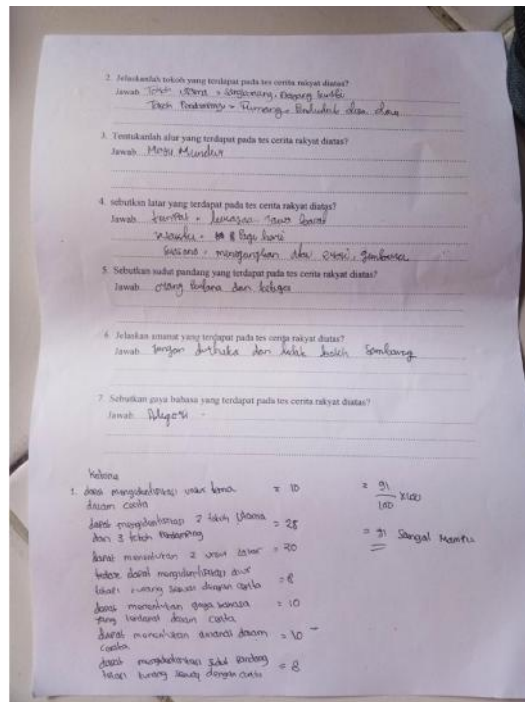 2. Jelaskanlah tokoh yang terdapat pada tes cerita rakyat diatas?
Jawab: Tokoh Utama = Sangkuriang, Dayang Sumbi
Tokoh = Tumang, Penduduk dan
3. Tentukanlah alur yang terdapat pada tes cerita rakyat diatas?
Jawab: Maju Mundur
4. sebutkan latar yang terdapat pada tes cerita rakyat diatas?
Jawab: tempat = Jawa barat
Waktu = Pagi hari
Suasana = menegangkan dan gembira
5. Sebutkan sudut pandang yang terdapat pada tes cerita rakyat diatas?
Jawab: Orang Pertama dan ketiga
6. Jelaskan amanat yang terdapat pada tes cerita rakyat diatas?
Jawab: Jangan durhaka dan tidak boleh Sombong
7. Sebutkan gaya bahasa yang terdapat pada tes cerita rakyat diatas?
Jawab: Alegori
1. dapat mengidentifikasi unsur tema = 10
dalam cerita
dapat mengidentifikasi 2 tokoh Utama = 25
dan 3 tokoh
dapat menentukan 2 unsur latar = 20
dapat mengidentifikasi alur = 8
tetapi kurang sesuai dengan cerita
dapat menentukan gaya bahasa = 10
yang terdapat dalam cerita
dapat menentukan amanat dalam = 10
cerita
dapat mengidentifikasi sudut pandang = 8
tetapi kurang sesuai dengan cerita
= 91/100 x100
= 91 Sangat Mampu